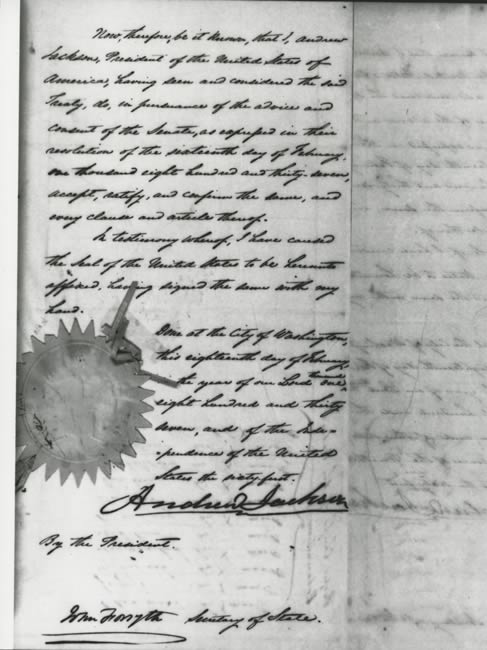 Now, therefore, be it known, that I, Andrew
Jackson, President of the United States of
America, having seen and considered the said
Treaty, do, in pursuance of the advice and
consent of the Senate, as expressed in their
resolution of the sixteenth day of February,
one thousand eight hundred and thirty-seven,
accept, ratify, and confirm the same, and
every clause and article thereof.
In testimony whereof, I have caused
the Seal of the United States to be hereunto
affixed, having signed the same with my
hand.
Done at the City of Washington,
this eighteenth day of February,
in the year of our Lord one thousand
eight hundred and thirty
seven, and of the Inde-
pendence of the United
States the sixty first.
Andrew Jackson
By the President.
John Forsyth Secretary of State.